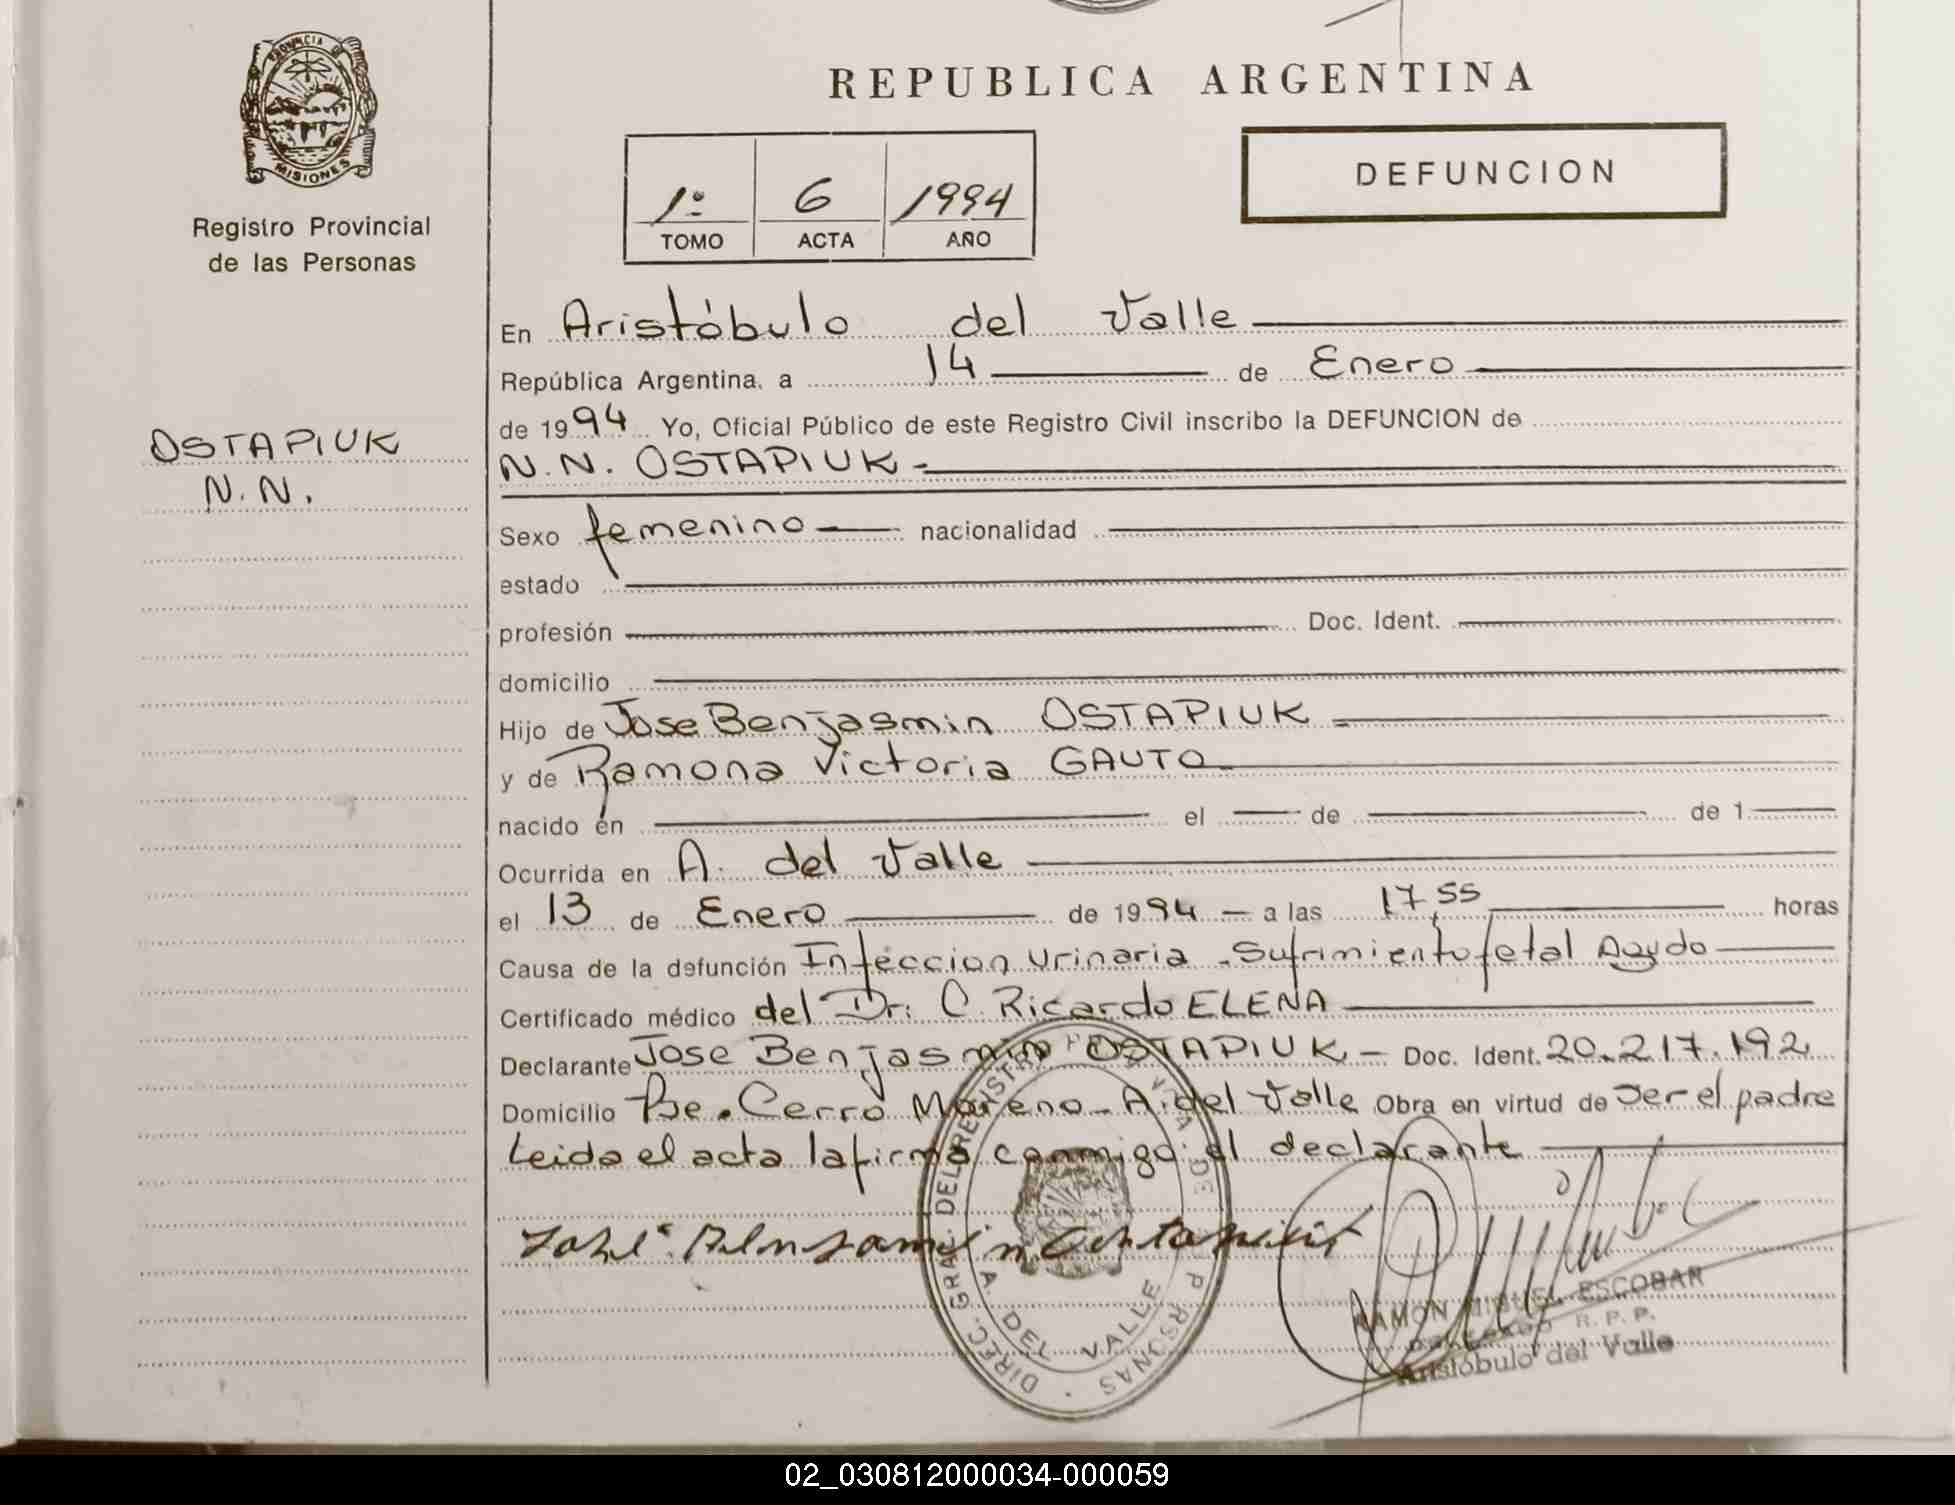 PROVINCIA DE
MISIONES
Registro Provincial
de las Personas
OSTAPIUK
N.N.
REPUBLICA ARGENTINA
1º 6 1994
TOMO ACTA AÑO
DEFUNCION
En Aristóbulo del Valle
República Argentina, a 14 de Enero
de 1994 Yo, Oficial Público de este Registro Civil inscribo la DEFUNCION de
N.N. OSTAPIUK-
Sexo femenino nacionalidad
estado
profesión Doc. Ident.
domicilio
Hijo de Jose Benjasmin OSTAPIUK
y de Ramona Victoria GAUTO
nacido en el de de 1
Ocurrida en A. del Valle
el 13 de Enero de 1994 - a las 17,55 horas
Causa de la defunción Infeccion Urinaria - Sufrimiento fetal Agudo
Certificado médico del Dr: C. Ricardo ELENA
Declarante Jose Benjasmin OSTAPIUK - Doc. Ident. 20.217.192
Domicilio Cerro Moreno - A. del Valle Obra en virtud de Ser el padre
Leida el acta la firma conmigo el declarante
DIREC. GRAL. DEL REGISTRO DE P RSONAS
A. DEL VALLE
RAMON MIGUEL ESCOBAR
R.P.P.
Aristóbulo del Valle
02_030812000034-000059